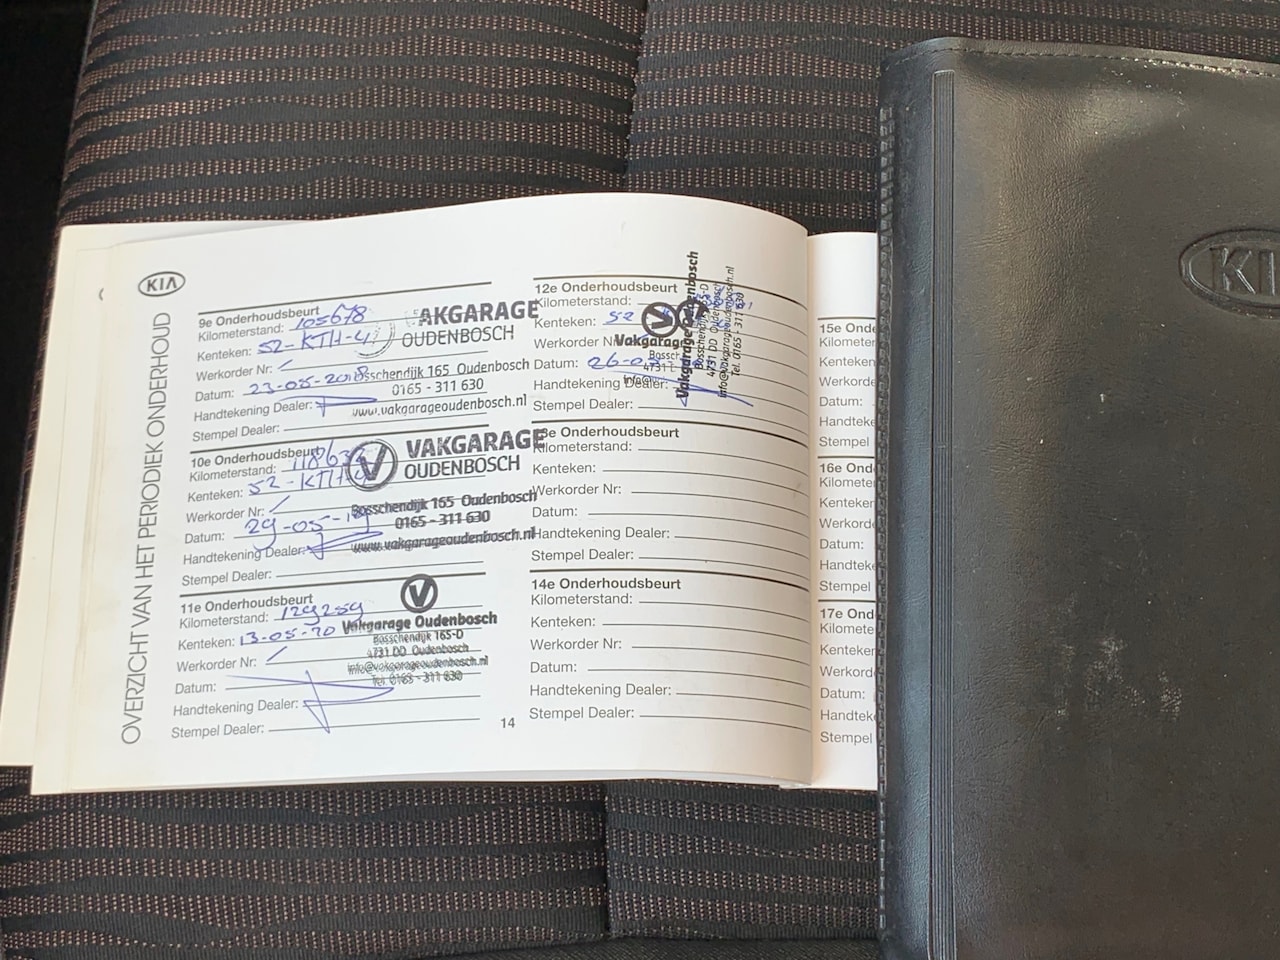 KIA
OVERZICHT VAN HET PERIODIEK ONDERHOUD
9e Onderhoudsbeurt
Kilometerstand: 105678
Kenteken: 52-KTH-4
Werkorder Nr: /
Datum: 23-05-2018
Handtekening Dealer:
Stempel Dealer:
AKGARAGE
OUDENBOSCH
Bosschendijk 165 Oudenbosch
0165 - 311 630
www.vakgarageoudenbosch.nl
10e Onderhoudsbeurt
Kilometerstand:
Kenteken: 52-KTH-
Werkorder Nr: /
Datum: 29-05-19
Handtekening Dealer:
Stempel Dealer:
V VAKGARAGE
OUDENBOSCH
Bosschendijk 165 Oudenbosch
0165 - 311 630
www.vakgarageoudenbosch.nl
11e Onderhoudsbeurt
Kilometerstand: 129259
Kenteken: 13-05-20
Werkorder Nr: /
Datum:
Handtekening Dealer:
Stempel Dealer:
V
Vakgarage Oudenbosch
Bosschendijk 165-D
4731 DD Oudenbosch
info@vakgarageoudenbosch.nl
Tel. 0165 - 311 630
14
12e Onderhoudsbeurt
Kilometerstand:
Kenteken: 52
Werkorder Nr
Datum: 26-03
Handtekening Dealer:
Stempel Dealer:
Vakgarage
Vakgarage Oudenbosch
Bosschendijk 165-D
4731 DD Oudenbosch
info@vakgarageoudenbosch.nl
Tel. 0165 - 311 630
3e Onderhoudsbeurt
Kilometerstand:
Kenteken:
Werkorder Nr:
Datum:
Handtekening Dealer:
Stempel Dealer:
14e Onderhoudsbeurt
Kilometerstand:
Kenteken:
Werkorder Nr:
Datum:
Handtekening Dealer:
Stempel Dealer:
15e Onde
Kilometer
Kenteken
Werkorde
Datum:
Handteke
Stempel
16e Ond
Kilomete
Kenteken
Werkord
Datum:
Handteke
Stempel
17e Ond
Kilomete
Kenteken
Werkord
Datum:
Handteke
Stempel
KI